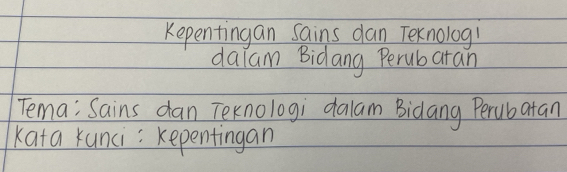 Kepentingan Sains dan Teknologi
dalam Bidang Perubatan
Tema: Sains dan Teknologi dalam Bidang Perubatan
Kata kunci : Kepentingan